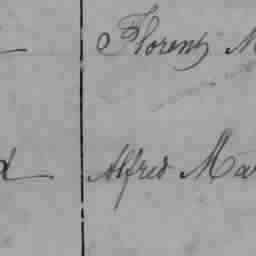 Florent M
d Alfred Ma